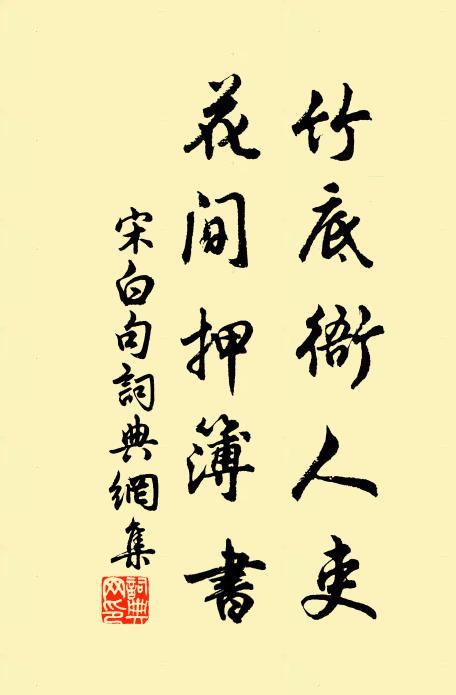 竹底衙人吏
花间押簿書
宋白句詞典網集
詞典网印